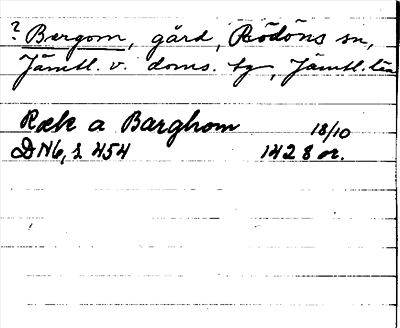 ? Bergom, gård, Rödöns sn,
Jämtl. v. doms. tg, Jämtl. län
Rælk a Barghom 18/10
DN6, s. 454 1428 or.